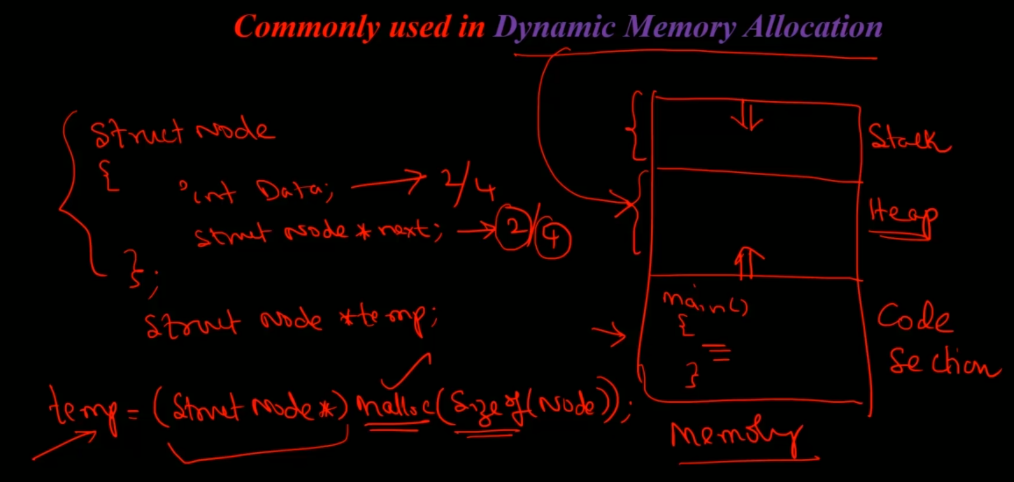 Commonly used in Dynamic Memory Allocation
Struct Node
{
int Data; → 2/4
Struct Node * next; → 2/4
};
Struct Node *temp;
temp = (Struct Node *) malloc(Sizeof(Node));
Stack
Heap
main()
{
}
Code
Section
Memory